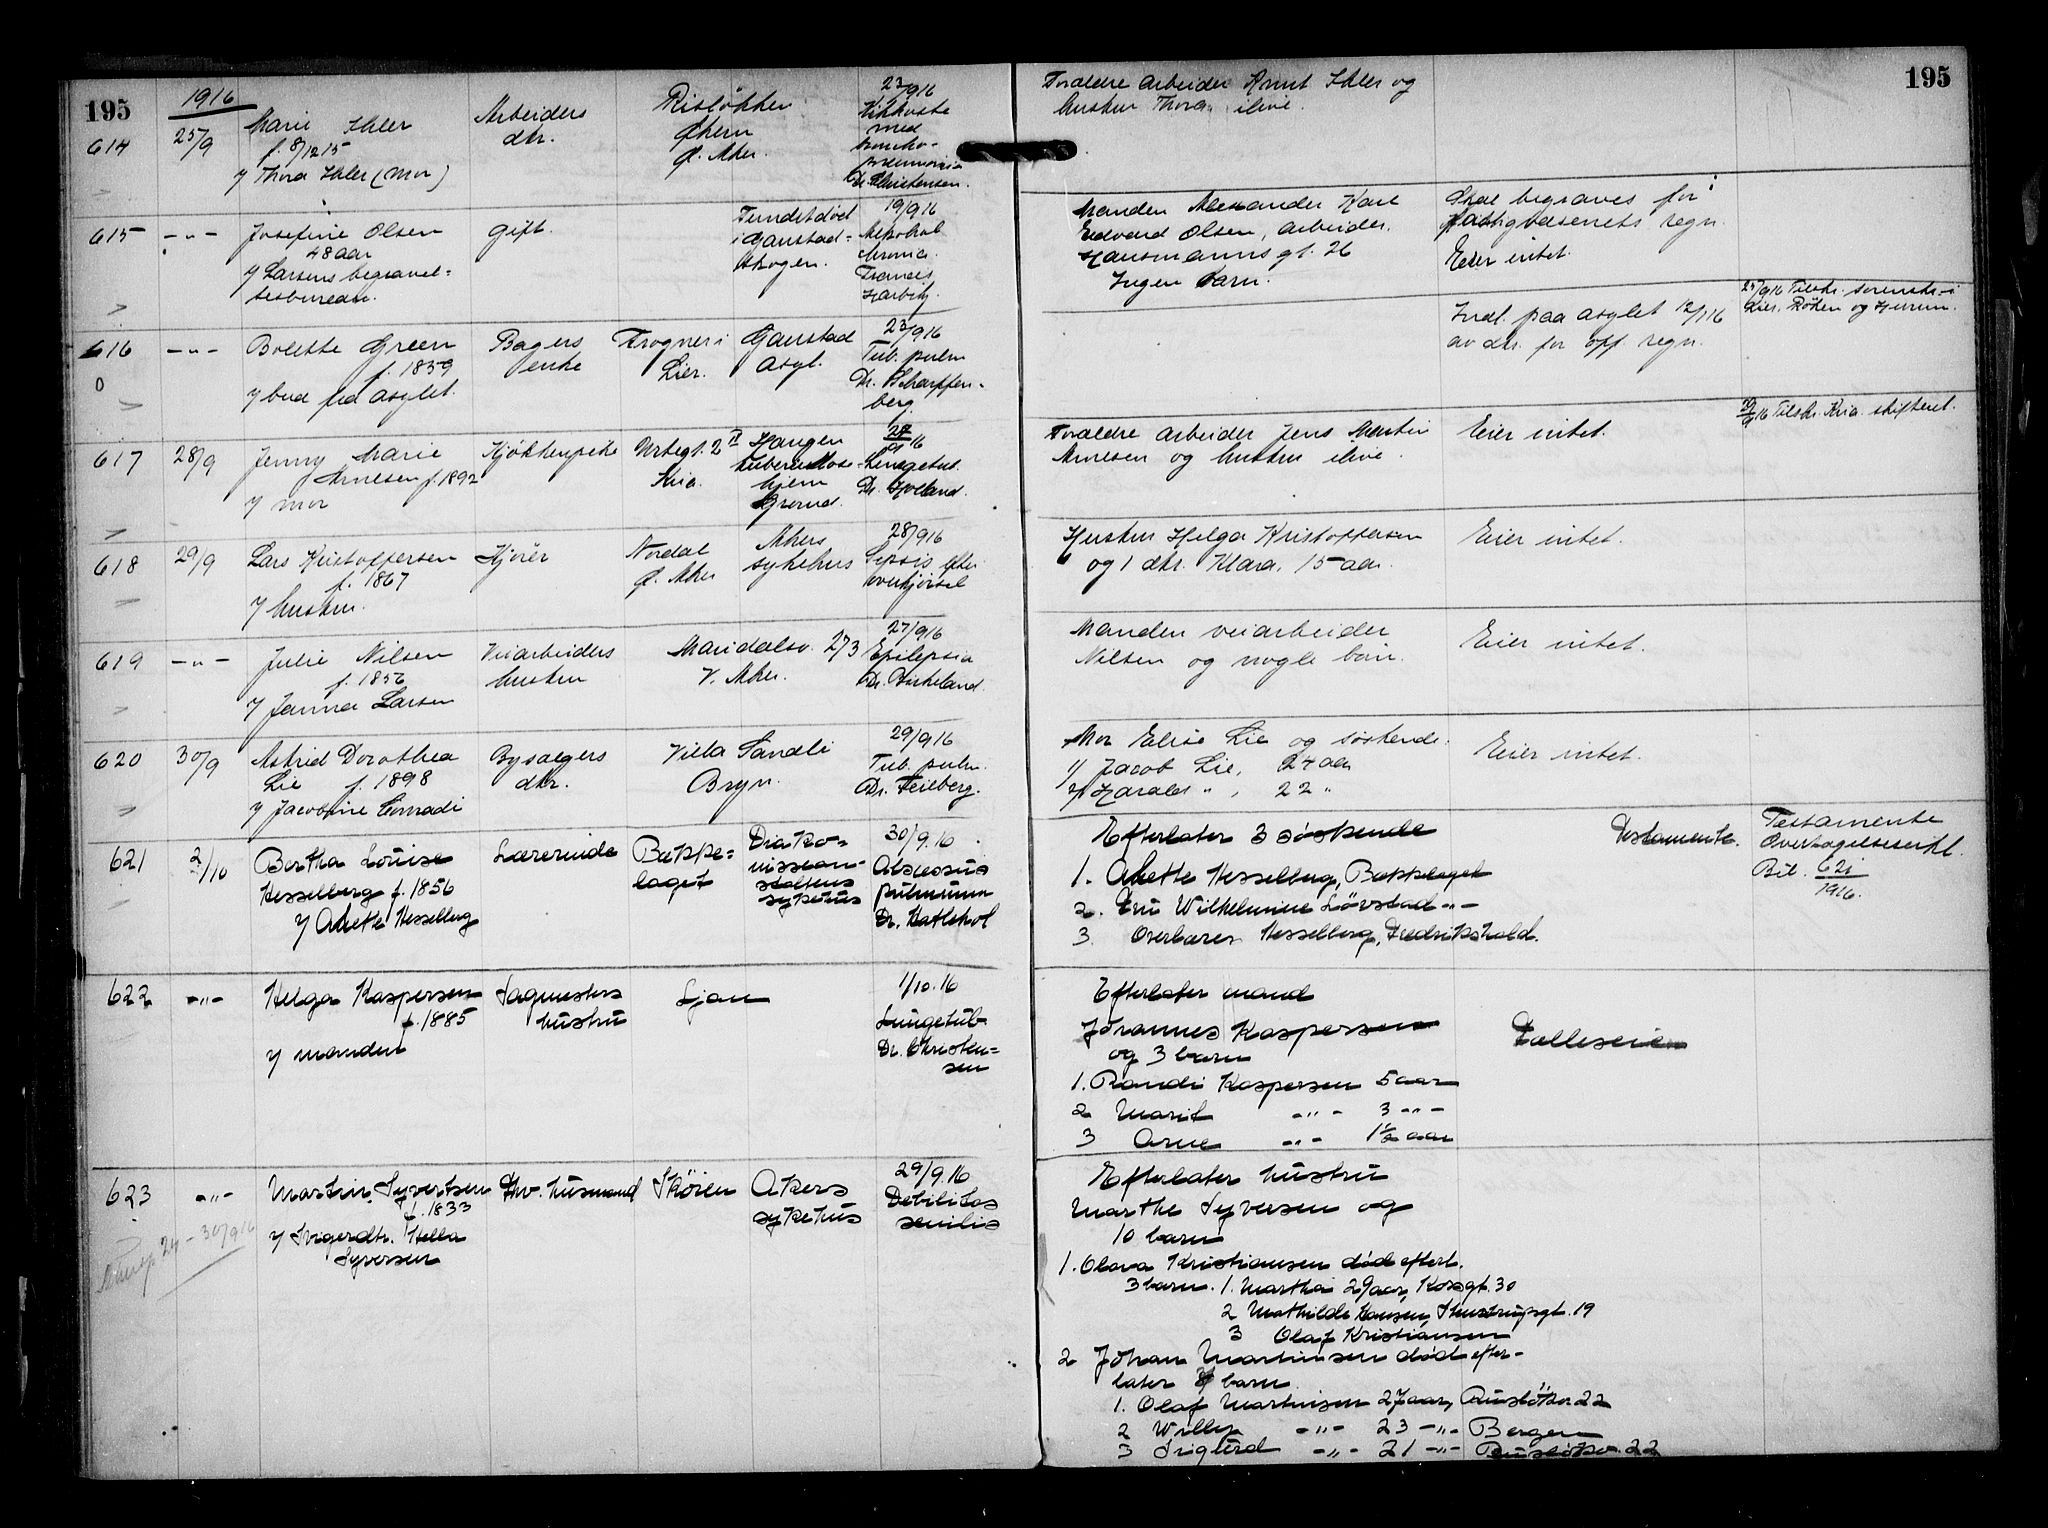 195
1916
195
614
25/9
Marie Ihler
f. 8/12 15
v/ Thora Ihler (mor)
Arbeiders
dtr.
Risløkken
Økern
Ø. Aker.
23/9 16
Kikhoste
med
broncho-
pneumonie
Dr. Christensen.
Forældre arbeider Arnt Ihler og
hustru Thora ilive.
615
-"-
Josefine Olsen
48 aar
v/ Larsens begravel=
sesbureau.
gift.
Fundet død
i Gaustad=
skogen.
19/9 16
Alkohol
chronic.
Francis
Harbitz.
Manden Alexander Karl
Edvard Olsen, arbeider,
Hausmannsgt. 26
Ingen barn.
Skal begraves for
fattigvæsenets regn.
Eier intet.
616
-"-
Bolette Green
f. 1859
v/ bud fra asylet.
Bagers
enke
Frogner i
Lier.
Gaustad
Asyl.
23/9 16
Tub. pulm
Dr. Scharffen-
berg.
Indl. paa asylet 12/1 16
av dtr. for off. regn.
25/9 16 Tilskr. sorenskr. i
Lier, Røken og Hurum.
617
28/9
Jenny Marie
Arnesen f. 1892
v/ mor
Kjøkkenpike
Urtegt. 2 II
Kria.
Haugen
tuberkulose-
hjem
Grorud.
27/9 16
Lungetub.
Dr. Holland.
Forældre arbeider Jens Martin
Arnesen og hustru ilive.
Eier intet.
29/9 16 Tilskr. Kria. skifteret.
618
29/9
Lars Kristoffersen
f. 1867
v/ hustru.
Kjører
Nordal
Ø. Aker
Akers
sykehus
28/9 16
Sepsis efter
overkjørsel
Hustru Helga Kristoffersen
og 1 dtr. Klara, 15 aar.
Eier intet.
619
-"-
Julie Nilsen
f. 1856
v/ Janna Larsen
Veiarbeiders
hustru
Maridalsv. 273
V. Aker.
27/9 16
Epilepsia
Dr. Birkeland.
Manden veiarbeider
Nilsen og nogle barn.
Eier intet.
620
30/9
Astrid Dorothea
Lie f. 1898
v/ Jacobine Conradi
Bysælgers
dtr.
Villa Sandli
Bryn.
29/9 16
Tub. pulm.
Dr. Feilberg.
Mor Elise Lie og søskende.
1/ Jacob Lie, 24 aar
2/ Harald " , 22 "
Eier intet.
621
2/10
Bertha Louise
Hesselberg f. 1856
v/ Anette Hesselberg
Lærerinde
Bække=
laget
Diako=
nissean-
staltens
sykehus
30/9.16
Abscessus
pulmonum
Dr. Hatlehol
Efterlater 3 søskende
1. Anette Hesselberg, Bækkelaget
2. Fru Wilhelmine Løvstad -"-
3. Overlærer Hesselberg, Fredrikshald.
Testamente.
Testamente
Overtagelseserkl.
Bil. 621
1916.
622
-"-
Helga Kaspersen
f. 1885
v/ manden
Sagmesters
hustru
Ljan
1/10.16
Lungetub.
Dr. Christen=
sen
Efterlater mand
Johannes Kaspersen
og 3 barn
1. Randi Kaspersen 5 aar
2 Marit -"- 3 -"-
3 Arne -"- 1½ aar
Fælleseie
623
-"-
Martin Syvertsen
f. 1833
v/ Svigerdtr. Hella
Syversen
Fhv. husmand
Skøien
Akers
sykehus
29/9.16
Debilitas
senilis
24 - 30/9 16
Efterlater hustru
Marthe Syversen og
10 barn
1. Olava Kristiansen død efterl.
3 barn. 1. Martha 29 aar, Korsgt. 30
2 Mathilde Hansen, Steenstrupsgt. 19
3 Olaf Kristiansen
2 Johan Martinsen død efter-
later barn.
1. Olaf Martinsen 27 aar, Ruseløkv. 22
2 Willy -"- 23 -"- Bergen
3 Sigurd -"- 21 -"- Ruseløkv. 22